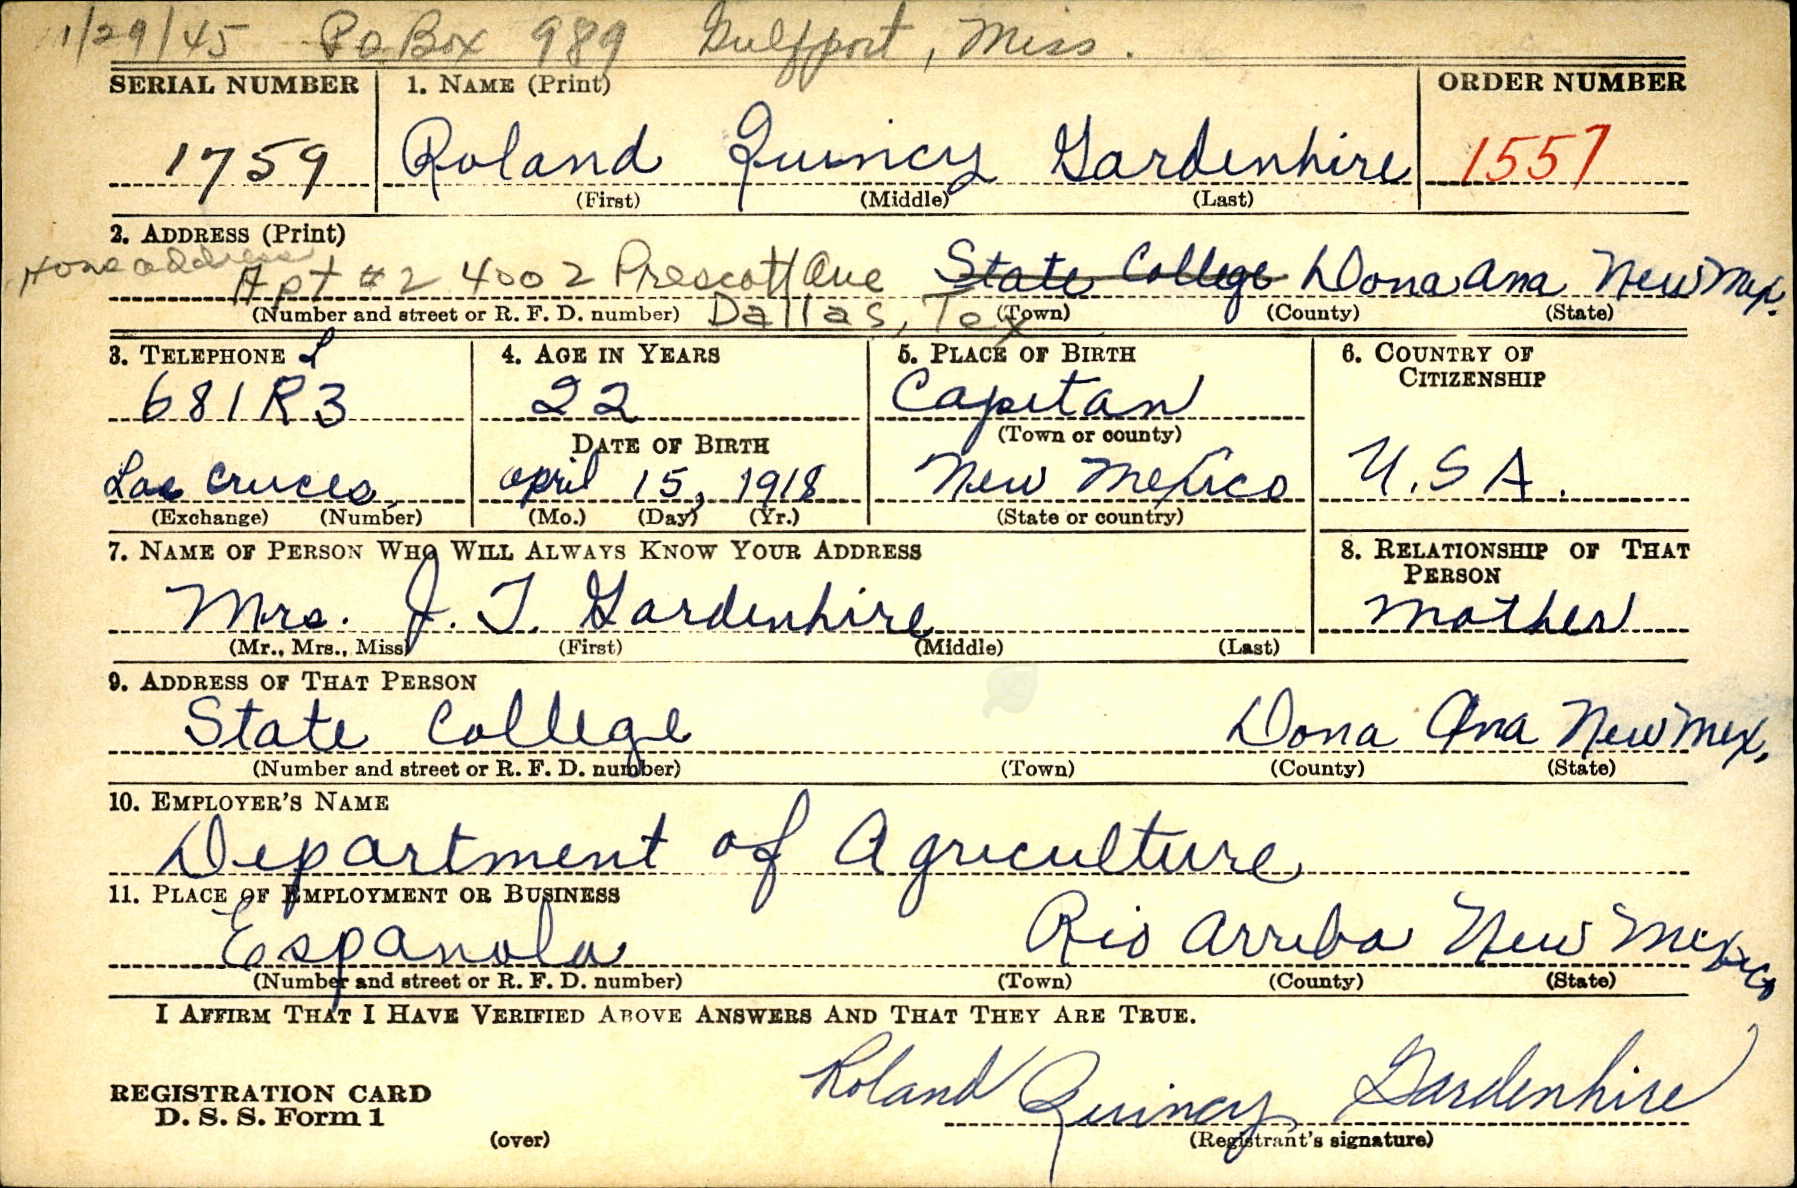 1/29/45 Po Box 989 Gulfport, Miss.
SERIAL NUMBER 1. NAME (Print) ORDER NUMBER
1759 Roland Quincy Gardenhire 1557
(First) (Middle) (Last)
2. ADDRESS (Print)
Home address
Apt #2 4002 Prescott Ave State College Dona Ana New Mex.
(Number and street or R. F. D. number) Dallas, Tex (Town) (County) (State)
3. TELEPHONE 4. AGE IN YEARS 5. PLACE OF BIRTH 6. COUNTRY OF CITIZENSHIP
681R3 22 Capitan
DATE OF BIRTH (Town or county)
Las Cruces, April 15, 1918 New Mexico U.S.A.
(Exchange) (Number) (Mo.) (Day) (Yr.) (State or country)
7. NAME OF PERSON WHO WILL ALWAYS KNOW YOUR ADDRESS 8. RELATIONSHIP OF THAT PERSON
Mrs. J. T. Gardenhire Mother
(Mr., Mrs., Miss) (First) (Middle) (Last)
9. ADDRESS OF THAT PERSON
State College Dona Ana New Mex,
(Number and street or R. F. D. number) (Town) (County) (State)
10. EMPLOYER'S NAME
Department of Agriculture
11. PLACE OF EMPLOYMENT OR BUSINESS
Espanola Rio Arriba New Mexico
(Number and street or R. F. D. number) (Town) (County) (State)
I AFFIRM THAT I HAVE VERIFIED ABOVE ANSWERS AND THAT THEY ARE TRUE.
Roland Quincy Gardenhire
REGISTRATION CARD
D. S. S. Form 1
(over) (Registrant's signature)